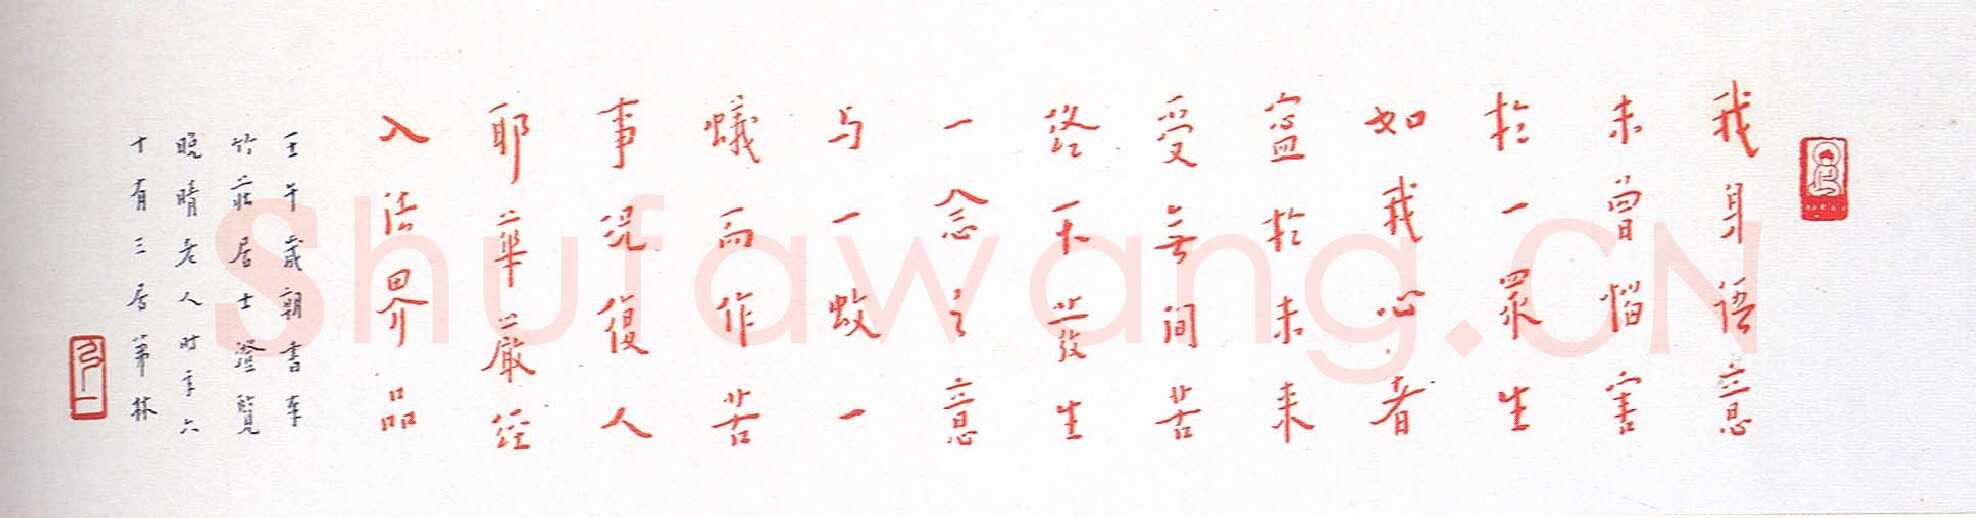 我身語意
未曾惱害
於一眾生
如我心者
寧於未來
受無間苦
終不發生
一念之意
与一蚊一
蟻而作苦
事況復人
耶華嚴經
入法界品
壬午歲朝書奉
竹莊居士澄覽
晚晴老人時年六
十有三居茀林
弘一
Shufawang.CN